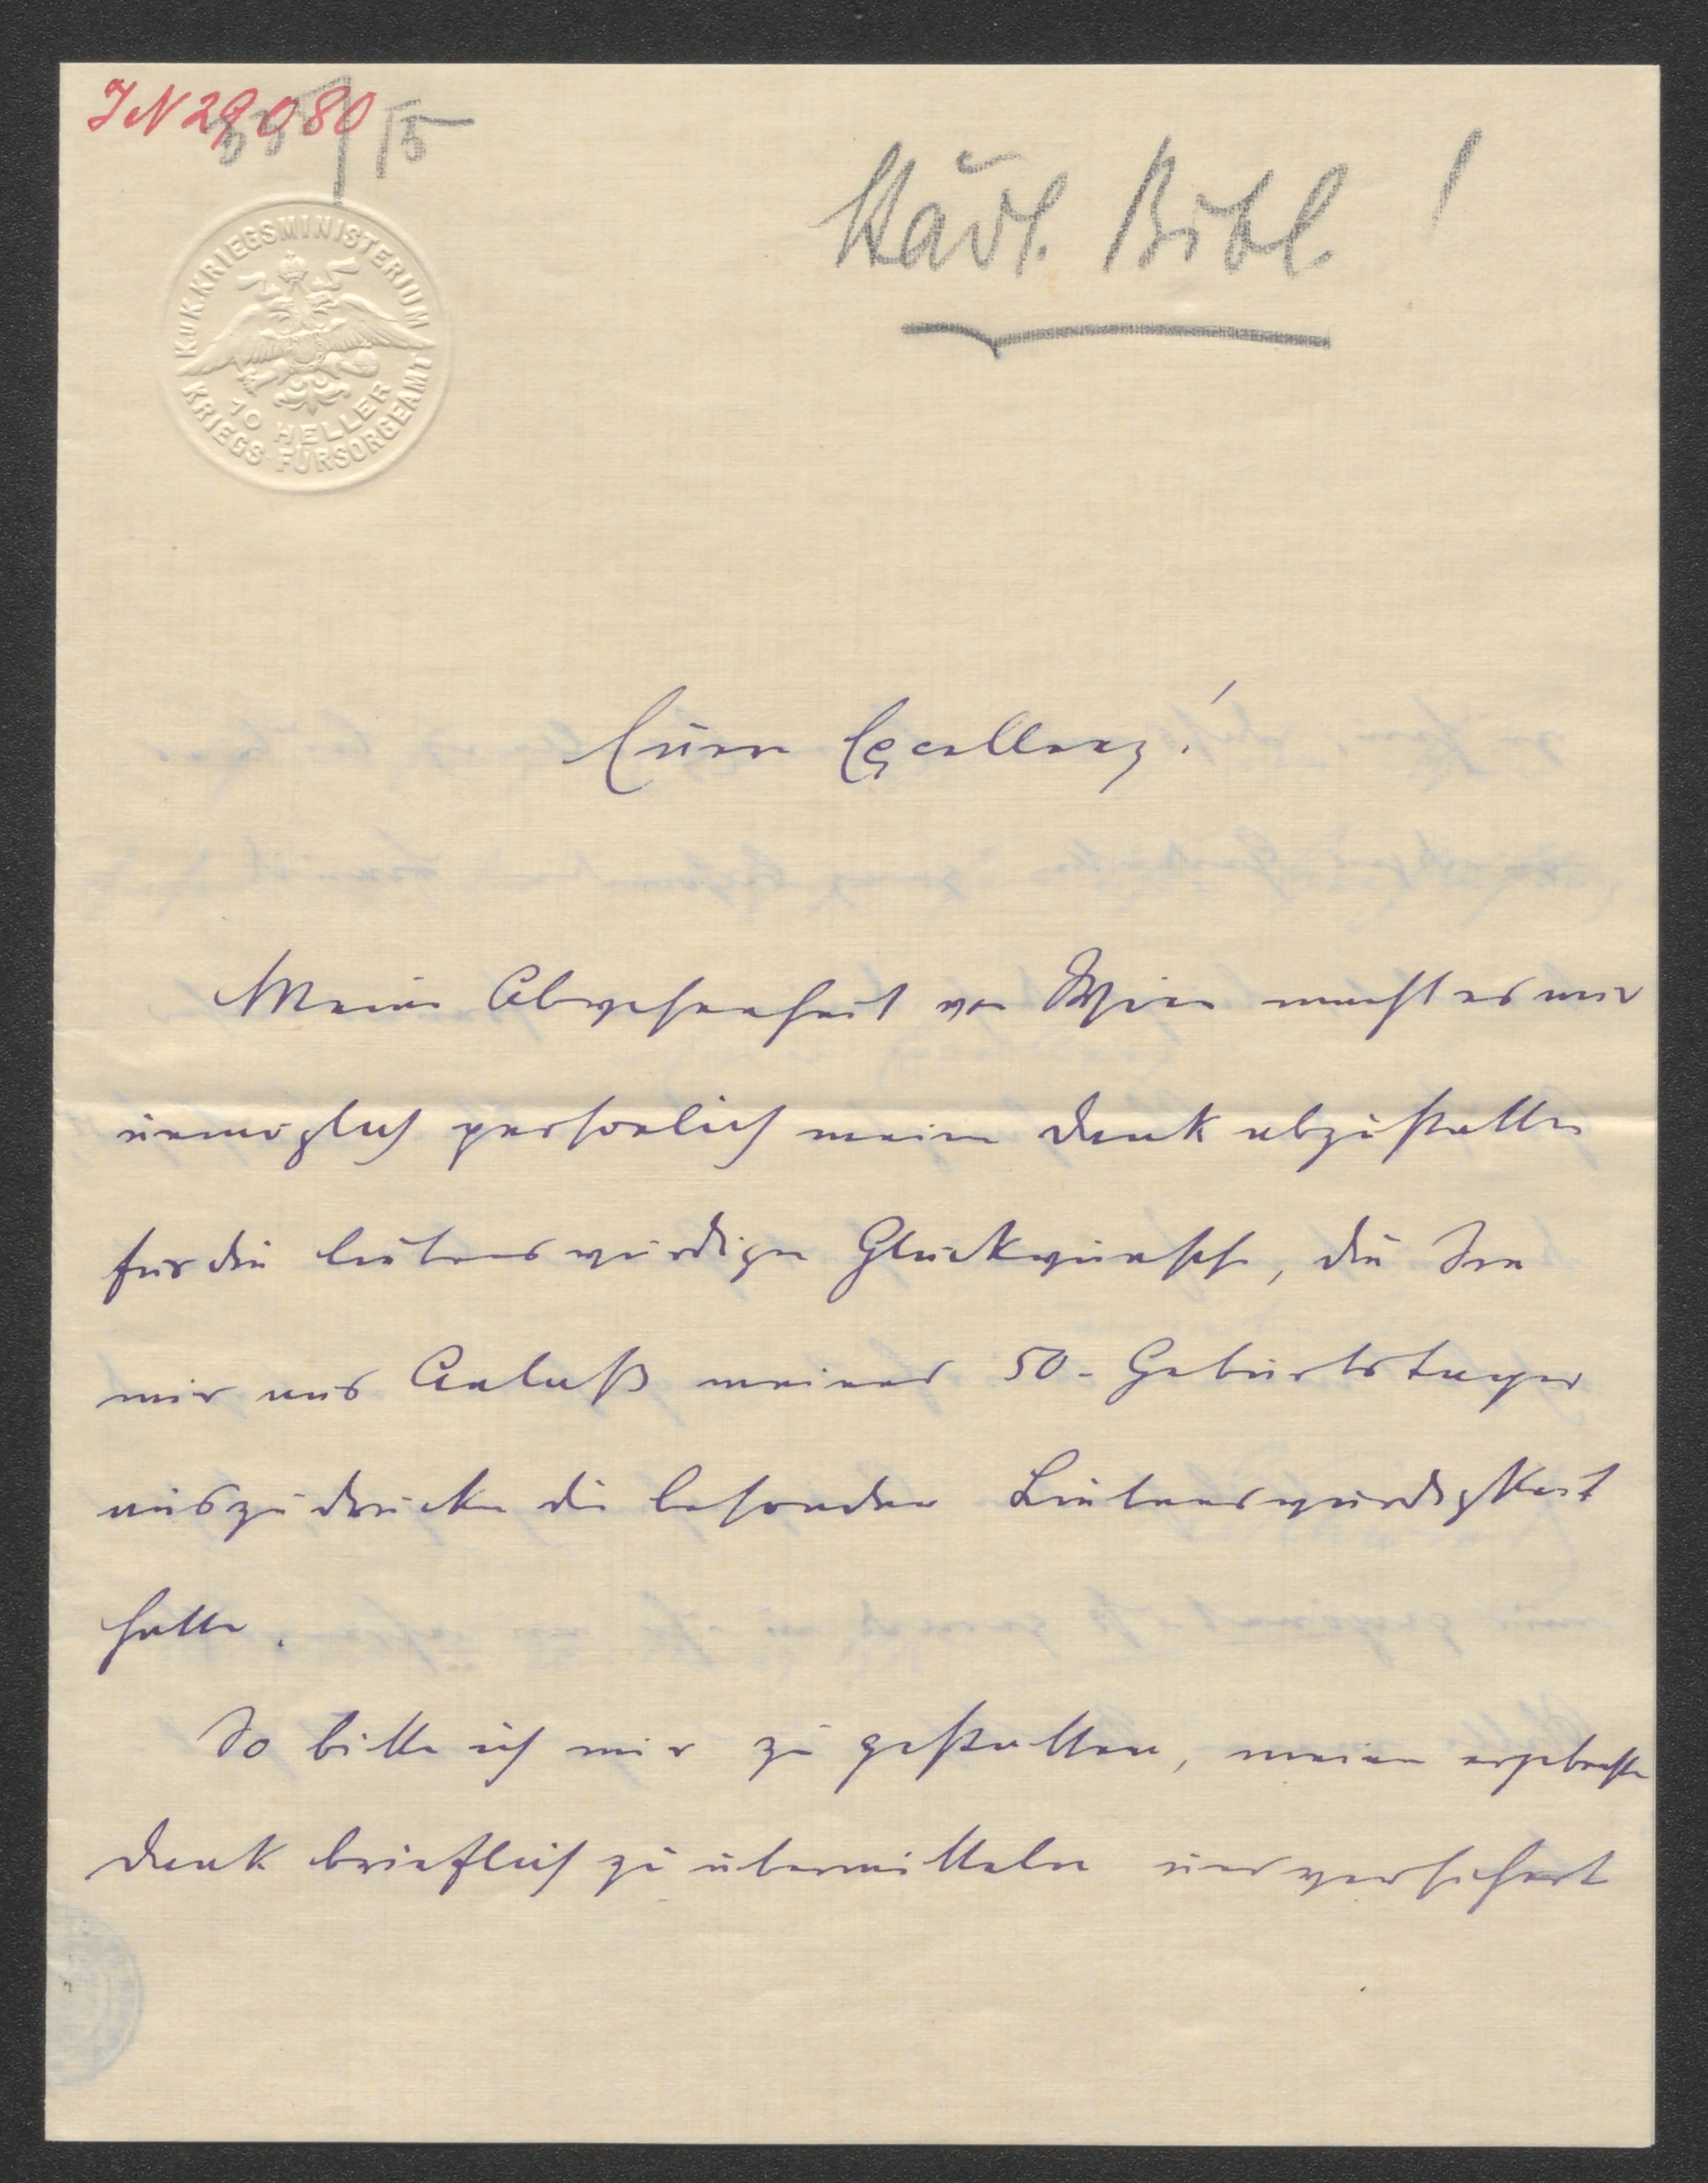 IN 29080
/15
Städt. Bibl. !
K.u.K. KRIEGSMINISTERIUM
10 HELLER
KRIEGS-FÜRSORGEAMT
Euere Excellenz!
Meine Abwesenheit von Wien macht es mir
unmöglich persönlich meinen Dank abzustatten
für die liebenswürdigen Glückwünsche, die Sie
mir aus Anlaß meines 50. Geburtstages
auszudrücken die besondere Liebenswürdigkeit
hatten.
So bitte ich mir zu gestatten, meinen ergebensten
Dank brieflich zu übermitteln und versichert